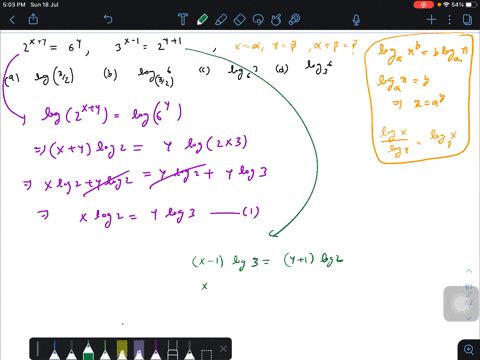 5:03 PM Sun 18 Jul
2^{x+y} = 6^y, 3^{x-1} = 2^{y+1}, x=α, y=β, α+β=?
(a) log(3/2) (b) log_{(3/2)} 6 (c) (d) log_3 6
log(2^{x+y}) = log(6^y)
⇒ (x+y) log 2 = y log(2×3)
⇒ x log 2 + y log 2 = y log 2 + y log 3
⇒ x log 2 = y log 3 —— (1)
(x-1) log 3 = (y+1) log 2
x
log_a x^b = b log_a x
log_a x = y
⇒ x = a^y
log x / log y = log_y x